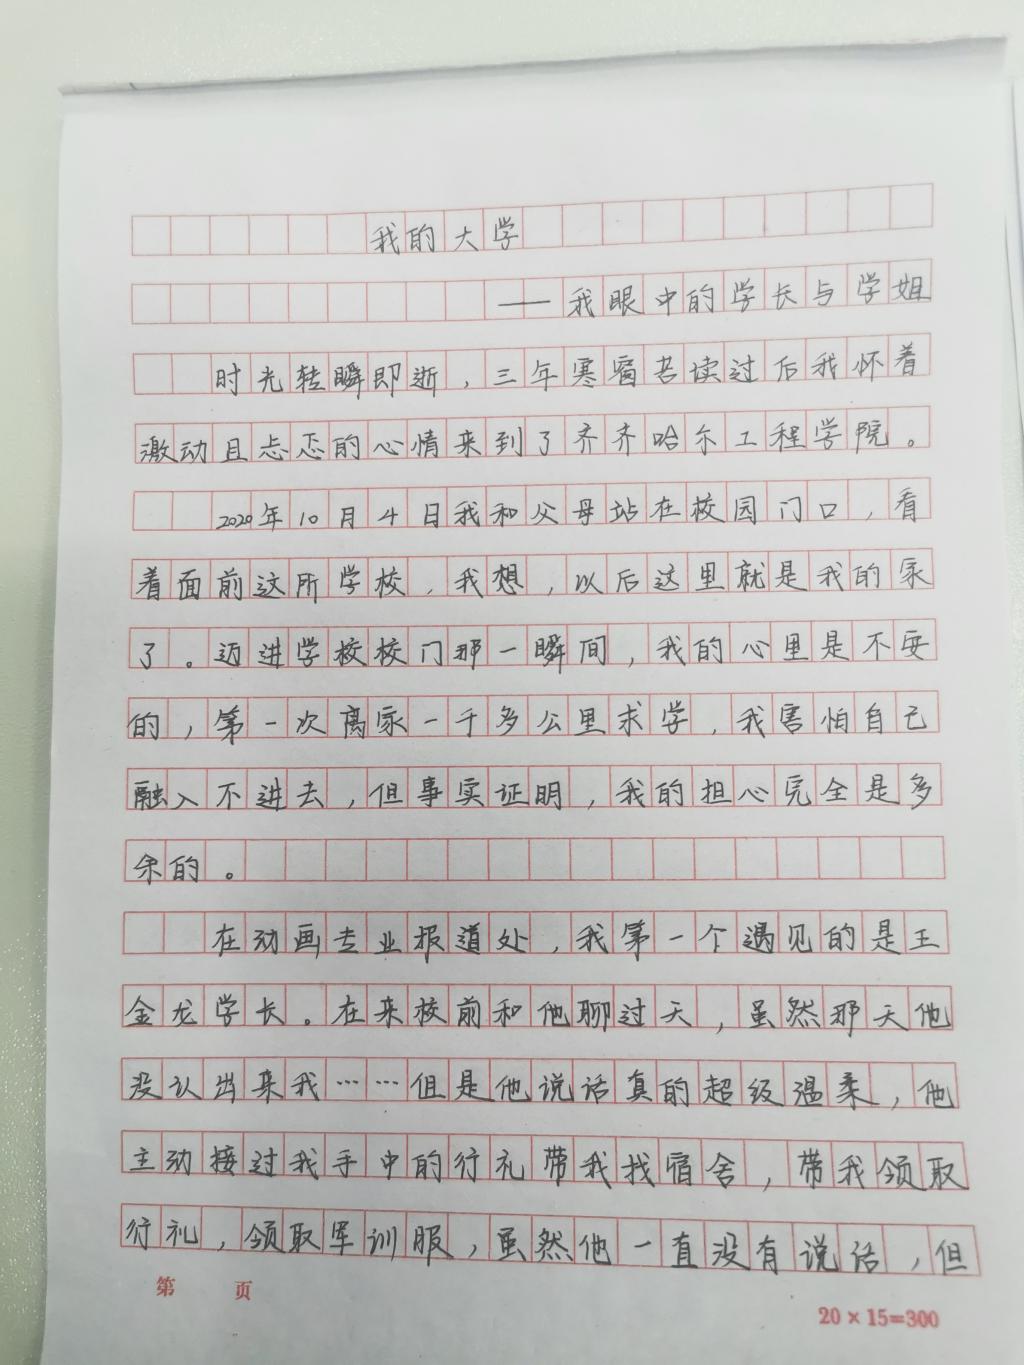 我的大学
——我眼中的学长与学姐
时光转瞬即逝，三年寒窗苦读过后我怀着
激动且忐忑的心情来到了齐齐哈尔工程学院。
2020年10月4日我和父母站在校园门口，看
着面前这所学校，我想，以后这里就是我的家
了。迈进学校校门那一瞬间，我的心里是不安
的，第一次离家一千多公里求学，我害怕自己
融入不进去，但事实证明，我的担心完全是多
余的。
在动画专业报道处，我第一个遇见的是王
金龙学长。在来校前和他聊过天，虽然那天他
没认出来我……但是他说话真的超级温柔，他
主动接过我手中的行礼带我找宿舍，带我领取
行礼，领取军训服，虽然他一直没有说话，但
第 页
20×15=300